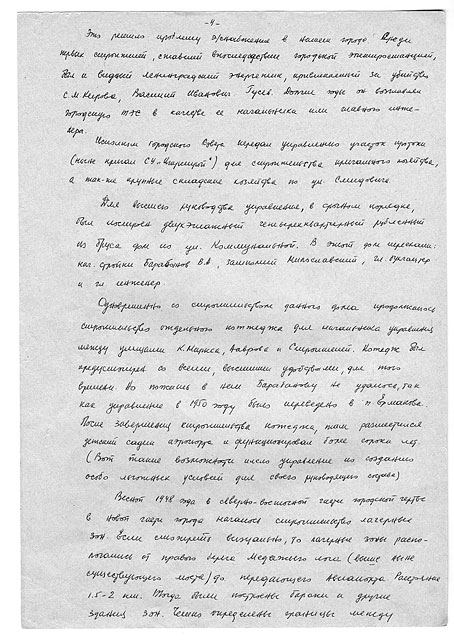 -4-
Это решило проблему э/снабжения в нашем городе. Среди
первых строителей, ставшей впоследствие городской электростанцией,
был и видный ленинградский энергетик, привлекаемый за убийство
С.М.Кирова, Василий Иванович Гусев. Долгие годы он возглавлял
городскую ТЭС в качестве ее начальника или главного инже-
нера.
Исполком городского Совета передал управлению участок протоки
(ныне причал СУ "Игарстрой") для строительства причального хозяйства,
а так-же крупные складские хозяйства по ул. Смидовича.
Для высшего руководства управления, в срочном порядке,
был построен двухэтажный четырехквартирный рубленный
из бруса дом по ул. Коммунальной. В этот дом переехали:
нач. стройки Барабанов В.А, замполит, гл. бухгалтер
и гл. инженер.
Одновременно со строительством данного дома продолжалось
строительство отдельного коттеджа для начальника управления
между улицами К.Маркса, Лаврова и Строителей. Котедж был
предусмотрен со всеми, высшими удобствами, для того
времени. Но пожить в нем Барабанову не удалось, так
как управление в 1950 году было переведено в п. Ермаково.
После завершения строительства котеджа, там разместился
детский садик аэропорта и функционировал более сорока лет
(Вот такие возможности имело управление по созданию
особо льготных условий для своего руководящего состава)
Весной 1948 года в северно-восточной части городской черты
в новой части города началось строительство лагерных
зон. Если смотреть визуально, то лагерные зоны распо-
логались от правого берега Медвежьего лога (выше ныне
существующего моста) до передающего. Расстояние
1.5-2 км. Тогда были построены бараки и другие
здания зон. Четко определены границы между